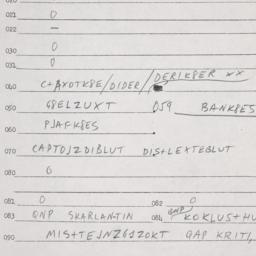 021. 0
022 —
031 0
033. 0
040 C+AXOTK8E/DIDER/DERIK8ER xx
050 G8ELZUXT 059 BANK8ES
060 PJAFK8ES
070 CADTOJZDIBLUT DIS+LEXTEBLUT
080 0
081 0 082 0
083 QNP SKARLANTIN 084 QNP KOKLUS+HU
090 MIS+TEJNZGJZOKT GAP KRITI,